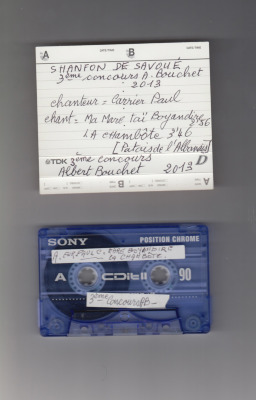 A
B
SHANFON DE SAVOUÉ
3ème concours A. Bouchet
2013
chanteur = Carrier Paul
chant = Ma Mare, taï Boyandire 3'56
LA CHAMBÔTE 3'46
[Patois de l'Albanais]
TDK 3ème concours D
Albert Bouchet 2013
SONY POSITION CHROME
BOYANDIRE
A CDit II 90
LA CHAMBÔTE
3ème Concours AB